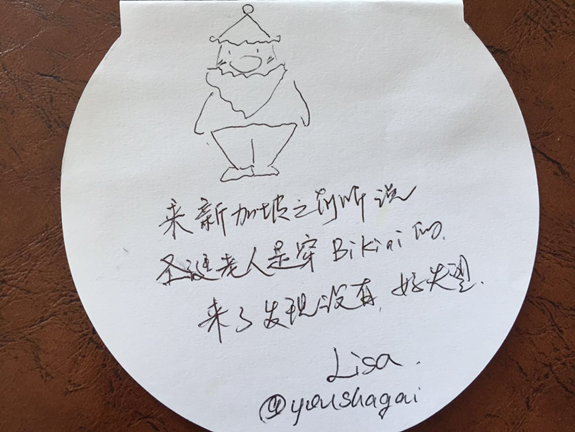 来新加坡之前听说
圣诞老人是穿Bikini的,
来了发现没有,好失望.
Lisa.
@youshagai